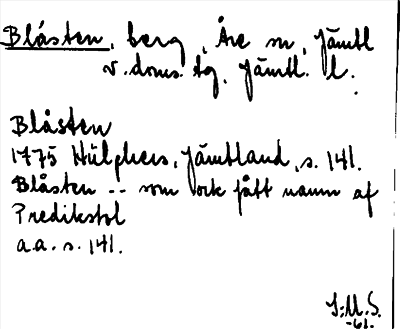 Blåsten, berg, Åre sn, Jämtl
v. doms. tg, Jämtl. l.
Blåsten
1775 Hülphers, Jämtland, s. 141.
Blåsten -- som ock fått namn af
Predikstol
a.a. s. 141.
-61.